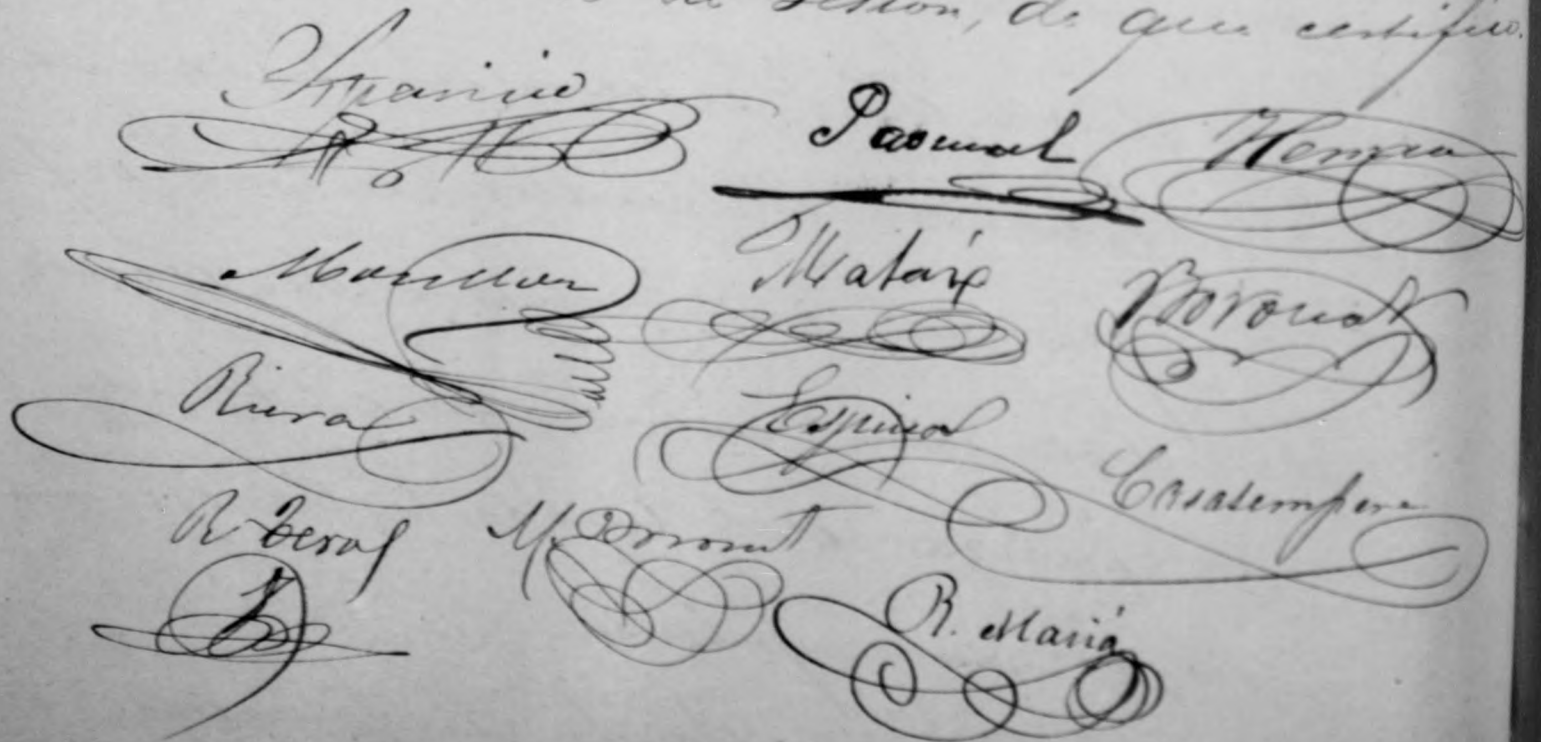 de Sesion, de que certifico.
Aparicio
Pascual
Monllor
Mataix
Boronat
Rivera
Espinos
Casasempere
R. Terol
M. Boronat
R. Mariá